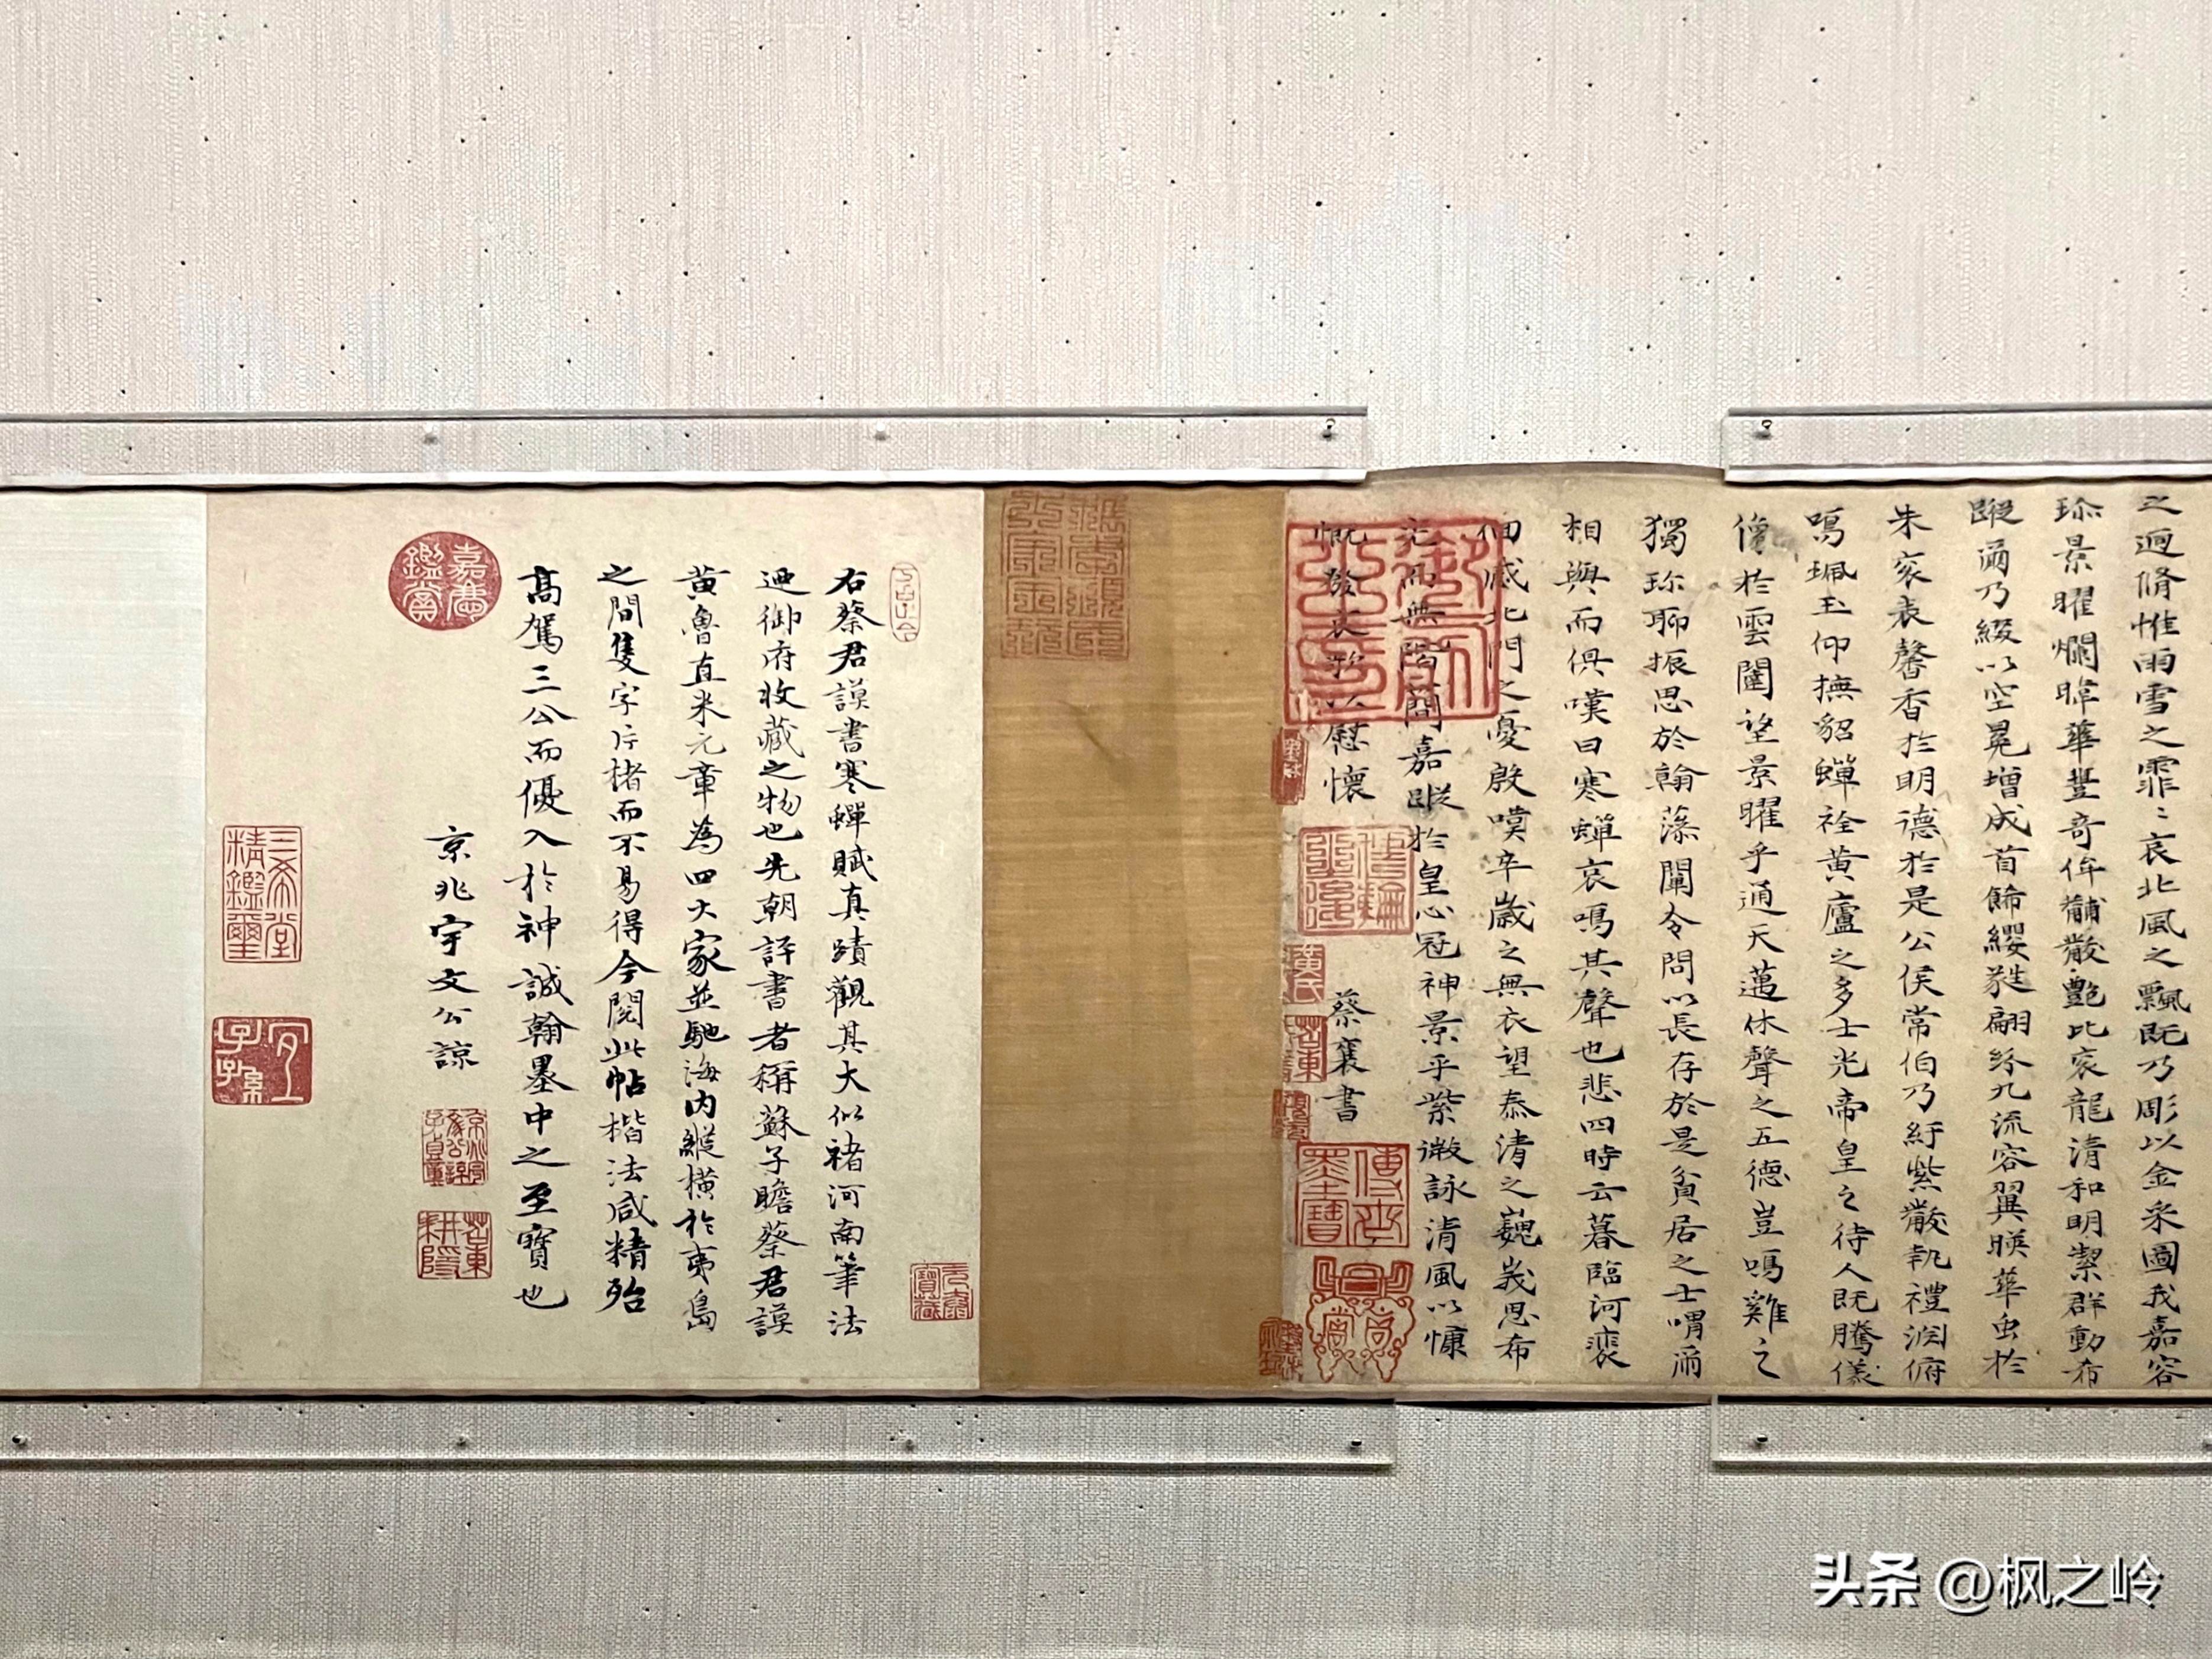 之迥脩惟雨雪之霏〻哀北風之飄既乃彫以金采圖我嘉容
珎景曜爛暐華豐奇侔黼黻艷比衮龍清和明潔群動布
蹤濔乃綴以空冕增成首飾纓蕤翩紛九流容翼暎華虫於
朱衮表馨香於明德於是公侯常伯乃紆紫黻執禮淵俯
鳴珮玉仰撫貂蟬於黄廬之多士光帝皇之待人既騰儀
像於雲闈望景曜乎通天邁休聲之五德豈鳴雞之
獨珎聊振思於翰藻闡令問以長存於是貧居之士喟爾
相與而俱嘆曰寒蟬哀鳴其聲也悲四時云暮臨河裴
佪感北門之憂殷嘆卒歲之無衣望泰清之巍峩思布
而無階蕑嘉蹤於皇心冠神景乎紫微詠清風以慷
慨發哀歌以慰懷
蔡襄書
右蔡君謨書寒蟬賦真蹟觀其大似褚河南筆法
廼御府收藏之物也先朝評書者稱蘇子瞻蔡君謨
黄魯直米元章為四大家並馳海内縱橫於夷島
之間隻字片楮而不易得今閲此帖楷法咸精殆
髙駕三公而優入於神誠翰墨中之至寳也
京兆宇文公諒
嘉慶鑑賞
三希堂精鑑璽
宜子孫
头条 @枫之岭